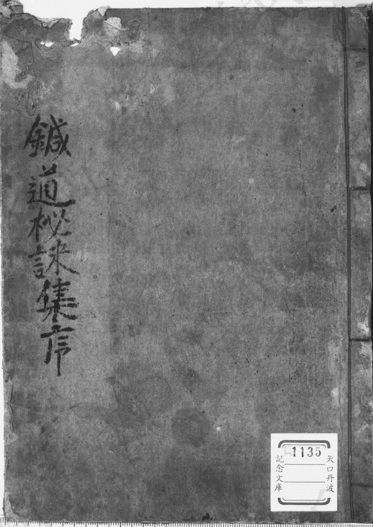 鍼道秘訣集序
1135
矢口丹波
記念文庫